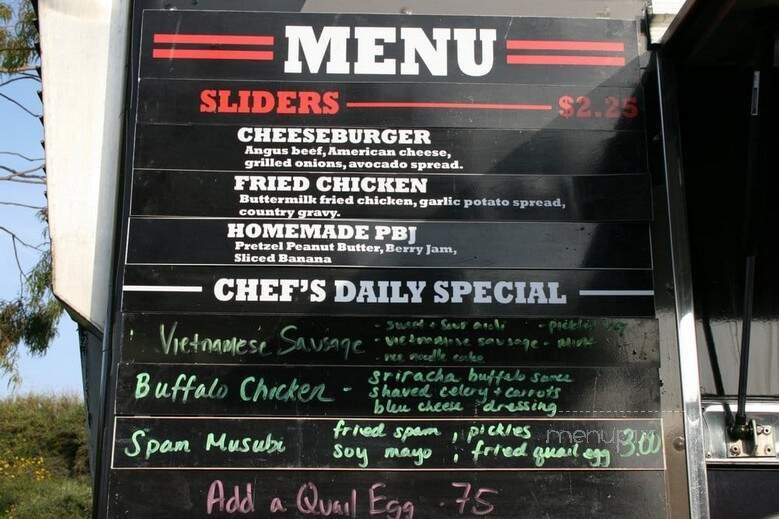 MENU
SLIDERS $2.25
CHEESEBURGER
Angus beef, American cheese,
grilled onions, avocado spread.
FRIED CHICKEN
Buttermilk fried chicken, garlic potato spread,
country gravy.
HOMEMADE PBJ
Pretzel Peanut Butter, Berry Jam,
Sliced Banana
CHEF'S DAILY SPECIAL
Vietnamese Sausage - sweet + sour aioli
- vietnamese sausage - mint
- rice noodle cake
Buffalo Chicken - sriracha buffalo sauce
shaved celery + carrots
bleu cheese dressing
Spam Musubi fried spam, pickles 3.00
soy mayo, fried quail egg
Add a Quail Egg .75